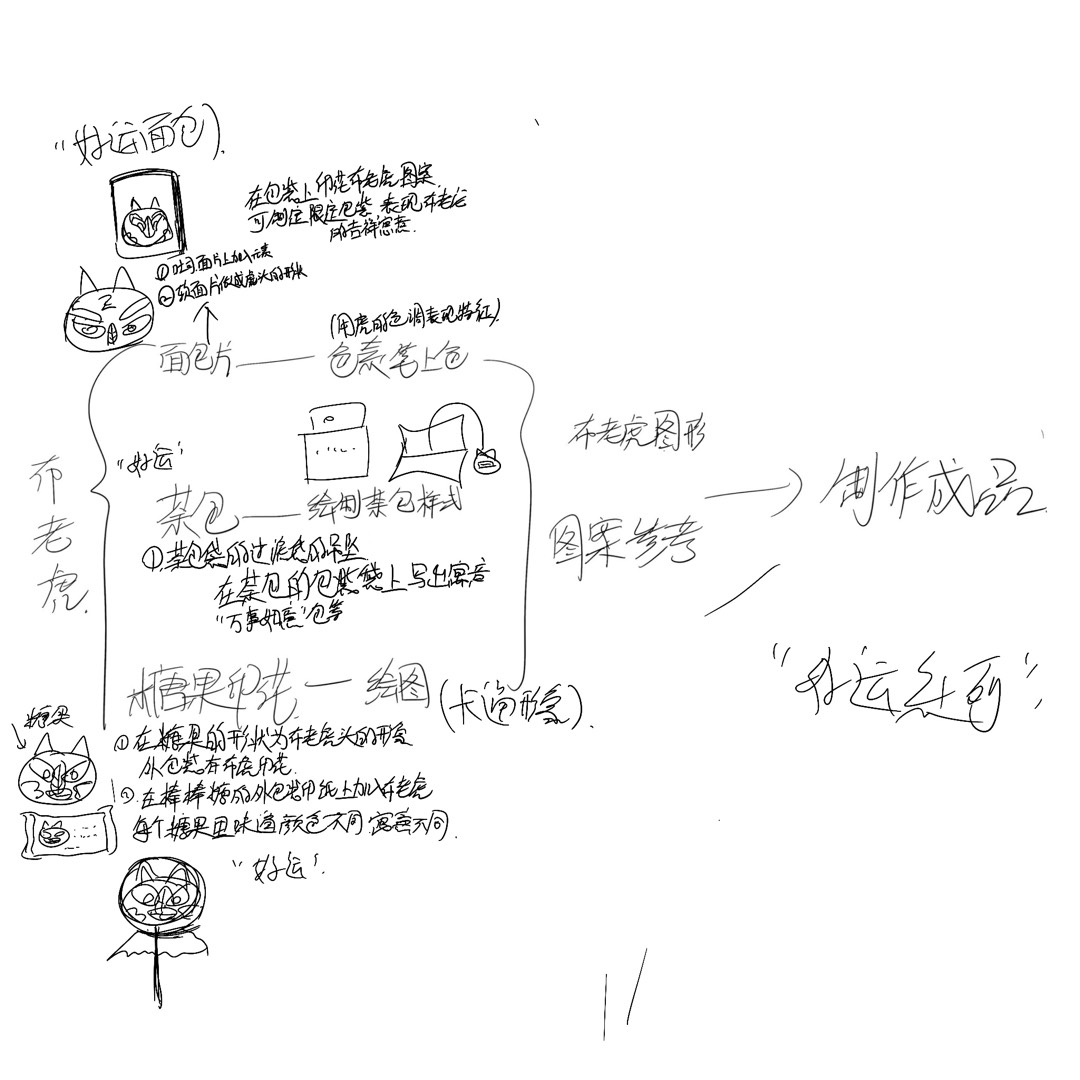 "好运面包"
在包装上印花布老虎图案
可制定限定包装,表现布老虎
的吉祥寓意.
①吐司面片上加入元素
②软面片做成虎头的形状
(用虎的色调表现特征)
面包片——色素笔上色
"好运"
茶包——绘制茶包样式
①茶包袋的过滤袋的吊坠
在茶包的包装袋上写出寓意
"万事如意"包等
布老虎
糖果印花——绘图(卡通形象).
糖果
①在糖果的形状为布老虎头的形象
外包装有布虎印花.
②在棒棒糖的外包装印纸上加入布老虎
每个糖果里味道颜色不同 寓意不同.
"好运".
布老虎图形
图案参考
制作成品
"好运系列".